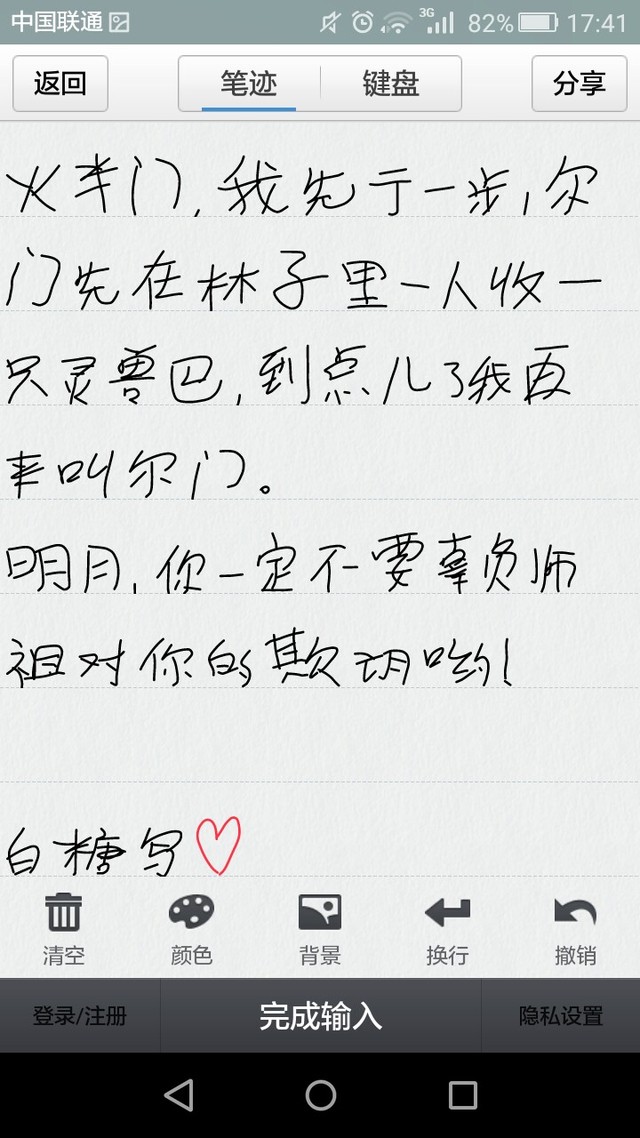 中国联通 3G 82% 17:41
返回 笔迹 键盘 分享
火半门,我先亍一步,尔
门先在林子里一人收一
只灵兽巴,到点儿了我再
来叫尔门。
明月,你一定不要辜负师
祖对你的欺玥哟!
白糖写
清空 颜色 背景 换行 撤销
登录/注册 完成输入 隐私设置